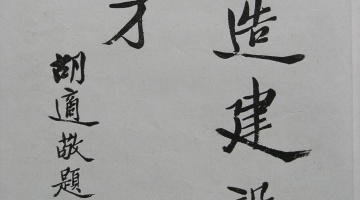 造建設
才
胡適敬題